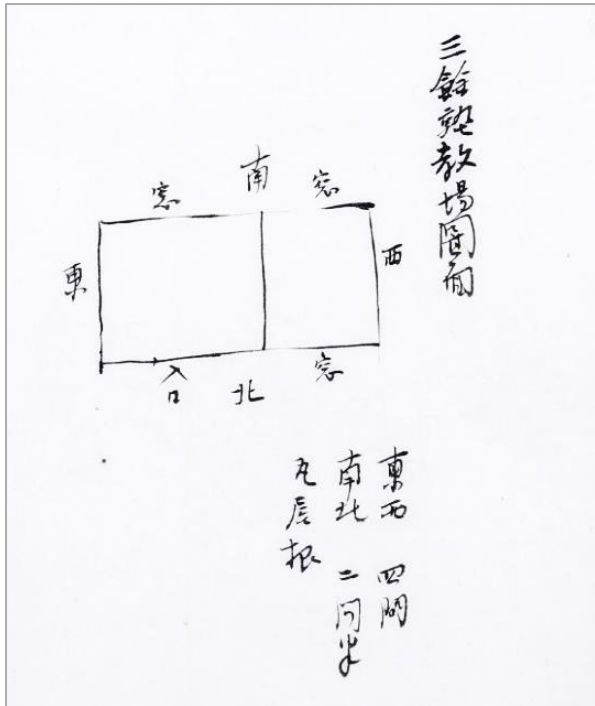 三餘塾教場図面
南
窓
窓
東
西
入口
北
窓
東西 四間
南北 二間半
瓦屋根